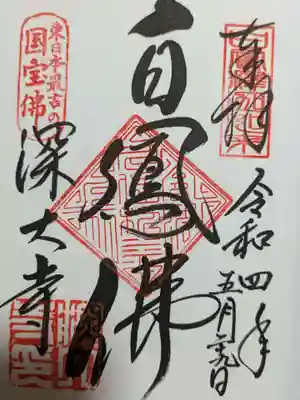 奉拝
令和四年
五月 日
白鳳佛
東日本最古の
国宝佛
深大寺